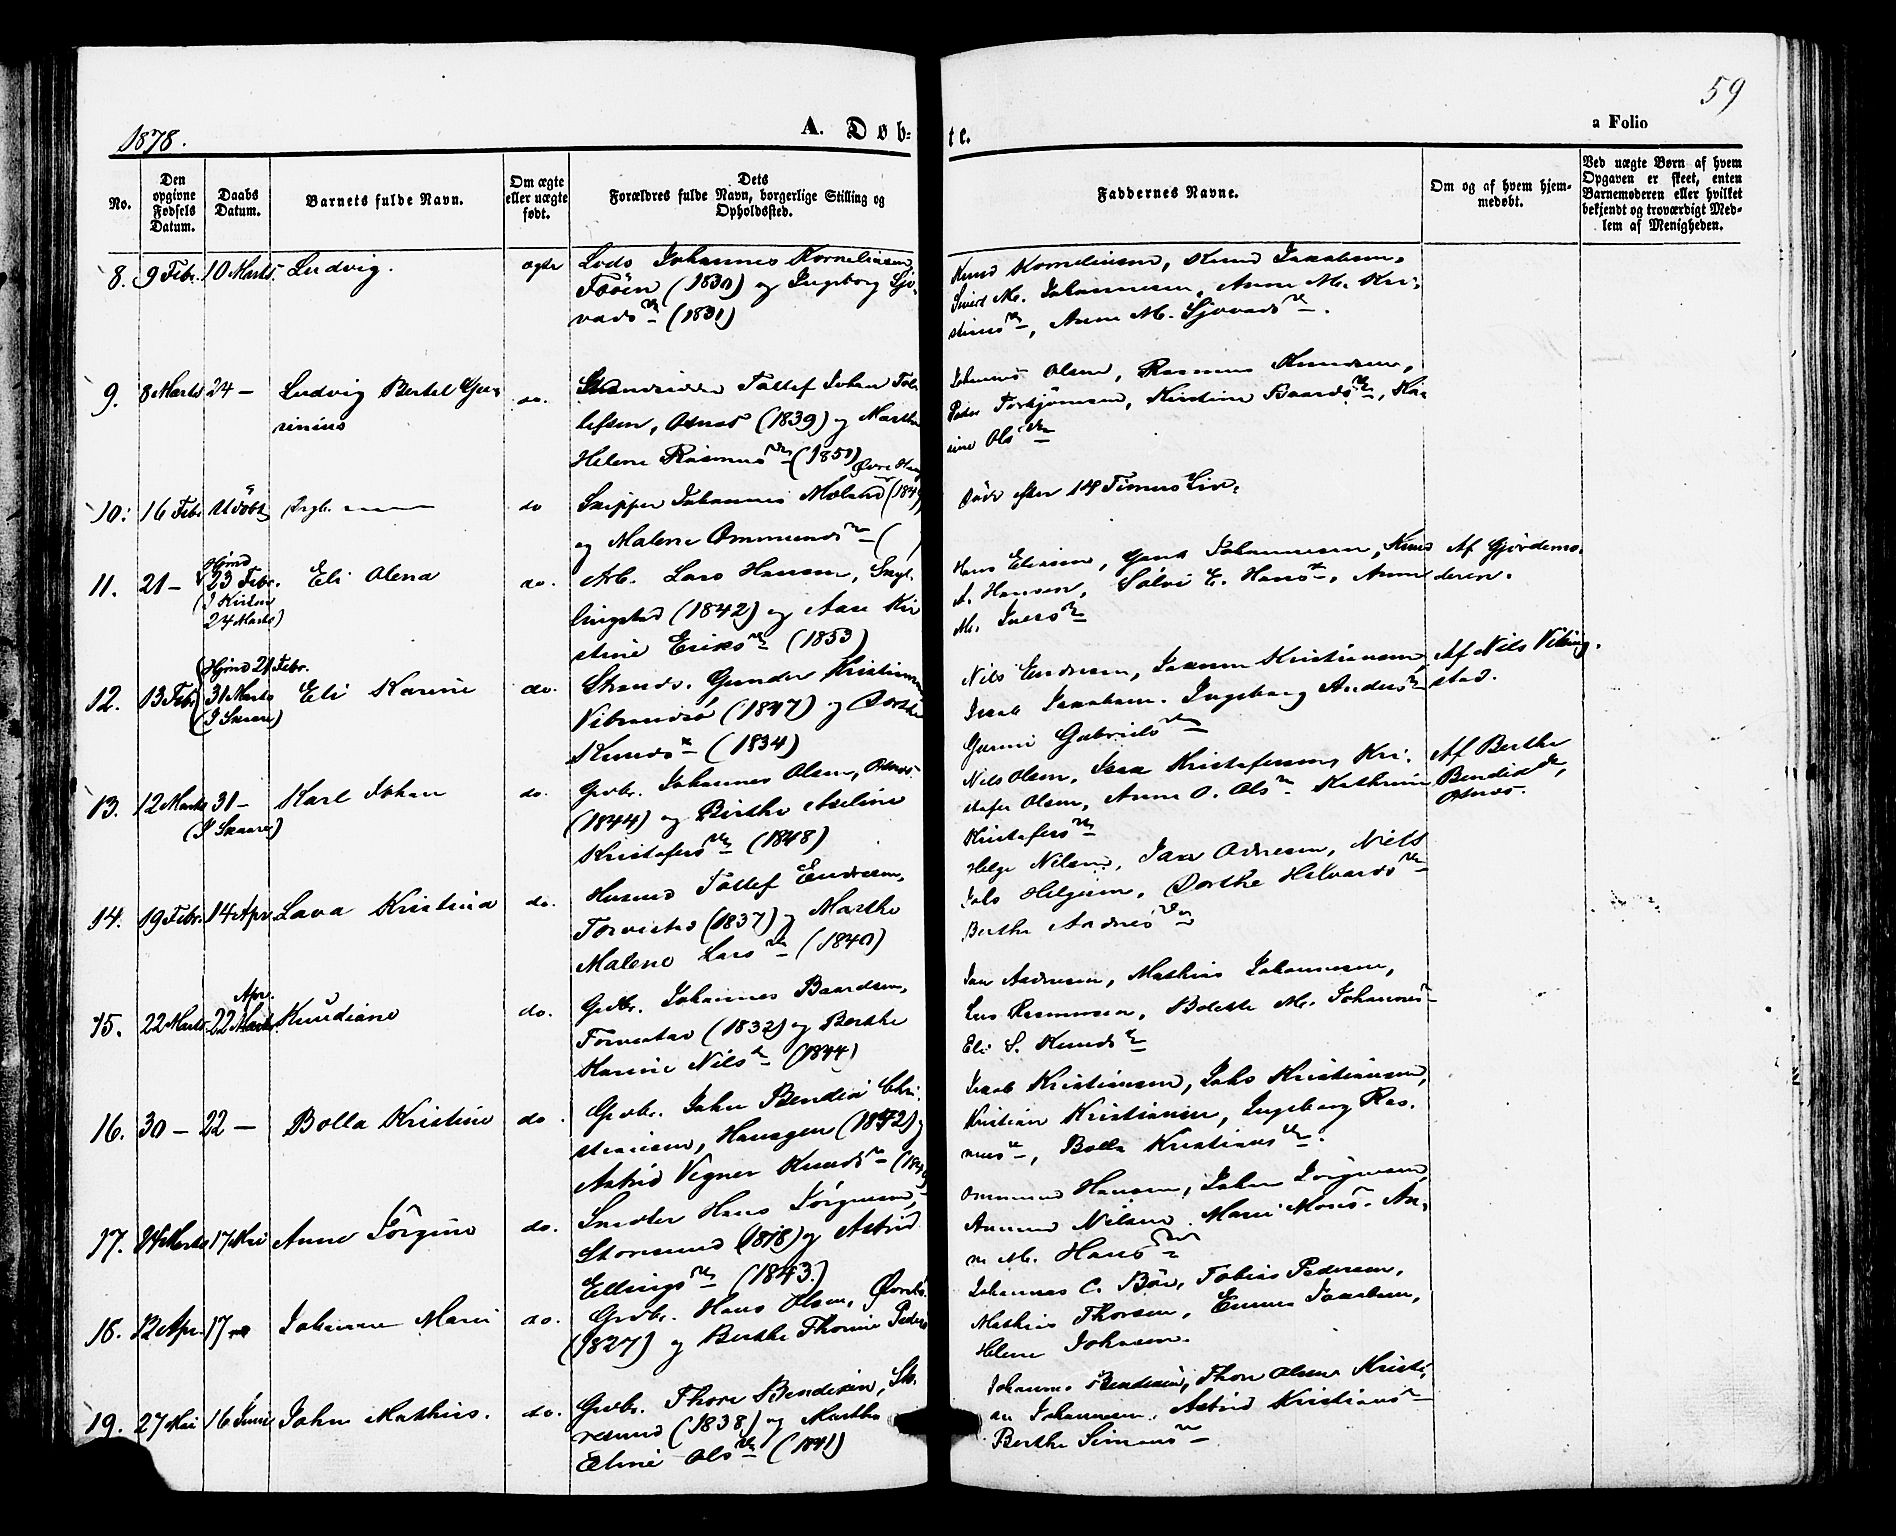 59
1878.
A. Døb-
te.
a Folio
No.
Den opgivne Fødsels Datum.
Daabs Datum.
Barnets fulde Navn.
Om ægte eller uægte født.
Dets Forældres fulde Navn, borgerlige Stilling og Opholdssted.
Faddernes Navne.
Om og af hvem hjemmedøbt.
Ved uægte Børn af hvem Opgaven er skeet, enten Barnemoderen eller hvilket bekjendt og troværdigt Medlem af Menigheden.
8. 9 Febr. 10 Marts. Ludvig. ægte Lods Johannes Korneliusen
Fööen (1830) og Ingeborg Sjo-
vads (1831)
Knud Korneliusen, Knud Jakobsen,
Sivert M. Johannesen, Anne M. Kri-
stines, Anne M. Sjovads.
9. 8 Marts 24 - Ludvig Bertel
rinius
do. Strandsidder Tollef Johan Tol-
lefsen, Osnæs (1839) og Marthe
Helene Rasmus (1850)
Johannes Olsen, Rasmus Knudsen,
Peder Torbjörnsen, Kirstine Baards, Ka-
rine Ols
10. 16 Febr. Udöbt do Skipper Johannes
og Malene Ommunds (
Döde efter 14 Timers Liv.
11. 21 - Hjemd 23 Febr.
(I Kirken
24 Marts)
Eli Olena do. Arb. Lars Hansen,
lingstad (1842) og Aase Ki-
stine Eriks (1853)
Hans Eliasen, Johannesen, Knud
A. Hansen, Sölvi E. Hans, Anne
M. Ivers
Af Gjördemo-
deren.
12. 13 Febr. (Hjemd 21 Febr.
31 Marts
(I Skaare)
Eli Karine do. Strands. Gunder Kristiansen
Vibrandsö (1847) og Dorthe
Knuds (1834)
Nils Endresen, Kristiansen
Jakob Jakobsen. Ingeborg Anders
Gunni Gabriels
Af Nils Viking-
stad.
13. 12 Marts 31 -
(I Skaare)
Karl Johan do. Grdbr. Johannes Olsen, Osnæs.
(1844) og Birthe Axeline
Kristofers (1848)
Nils Olsen, Kristofersen, Kri-
stofer Olsen, Anne O. Ols Kathrine
Kristofers
Af Berthe
Bendiks,
Osnæs.
14. 19 Febr. 14 Apr. Lava Kristina do. Husmd Tollef Endresen,
Torvestad (1837) og Marthe
Malene Lars (1840)
Helge Nilsen, Jan Andresen, Niels
Helgesen, Dorthe Helvards
Berthe Andreas
15. 22 Marts 22 Apr. Knudiane do. Grdbr. Johannes Baardsen,
Torvestad (1832) og Berthe
Karine Nils (1844)
Jan Andresen, Mathias Johannesen,
Lars Rasmussen, Bolette M. Johannes
Eli S. Knuds
16. 30 - 22 - Bolla Kristine do. Grdbr. John Bendix Chri-
stiansen, Haugen (1852) og
Astrid Vegner Knuds
Jakob Kristiansen, Johs Kristiansen,
Kristian Kristiansen, Ingeborg Ras-
mus, Bolla Kristians.
17. 24 Marts 17 Mai Anne Jörgine do. Snedker Hans Jörgensen,
Storesund (1818) og Astrid
Ellings (1843.)
Ommund Hansen, John Jörgensen
Ammund Nilsen. Mari Mons. An-
ne M. Hans
18. 12 Apr. 17 - Johanne Marie do. Grdbr. Hans Olsen,
(1827) og Berthe Thomine Peders
Johannes C. Böe, Tobias Pedersen,
Mathias Thorsen, Emma Jakobsen,
Helene Johnsen.
19. 27 Mai 16 Juni John Mathias. do. Grdbr. Thore Bendixen, Sto-
resund (1838) og Marthe
Eline Ols (1841)
Johannes Bendixen, Thore Olsen, Kristi-
an Johannesen, Astrid Kristians
Berthe Simons